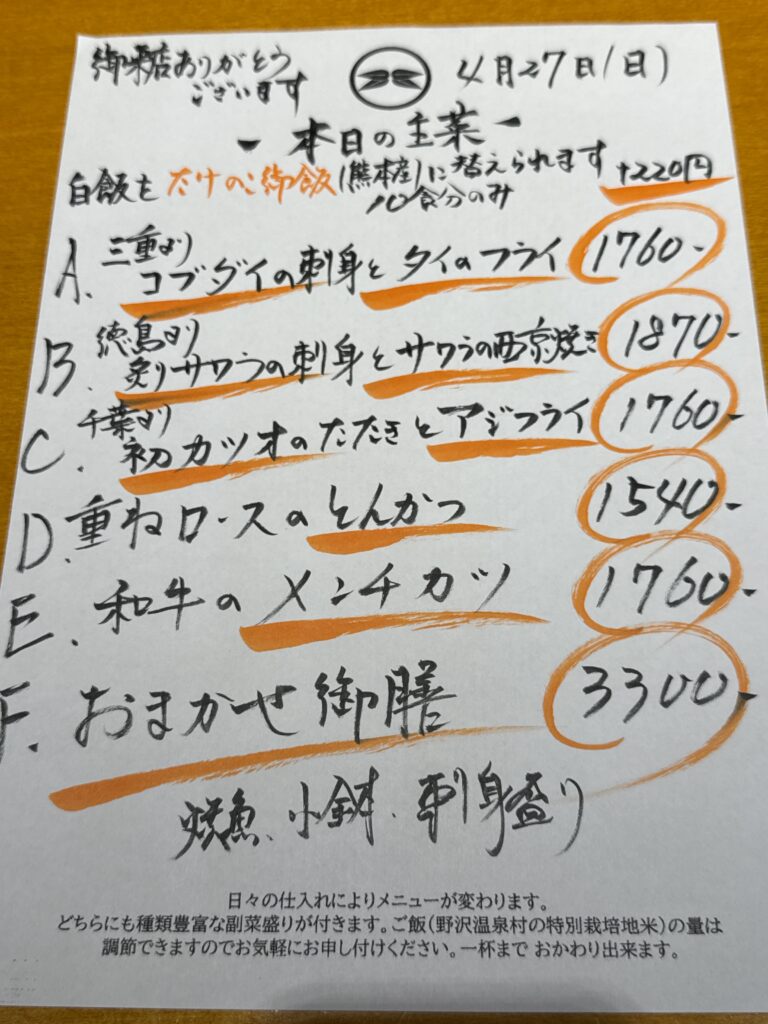 御来店ありがとう
ございます
4月27日(日)
- 本日の主菜 -
白飯を たけのこ御飯(熊本産)に替えられます +220円
10食分のみ
A. 三重より
コブダイの刺身と タイのフライ 1760-
B. 徳島より
炙りサワラの刺身とサワラの西京焼き 1870-
C. 千葉より
初カツオのたたきとアジフライ 1760-
D. 重ねロースのとんかつ 1540-
E. 和牛のメンチカツ 1760-
F. おまかせ御膳 3300-
焼魚、小鉢、刺身盛り
日々の仕入れによりメニューが変わります。
どちらにも種類豊富な副菜盛りが付きます。ご飯(野沢温泉村の特別栽培地米)の量は
調節できますのでお気軽にお申し付けください。一杯まで おかわり出来ます。